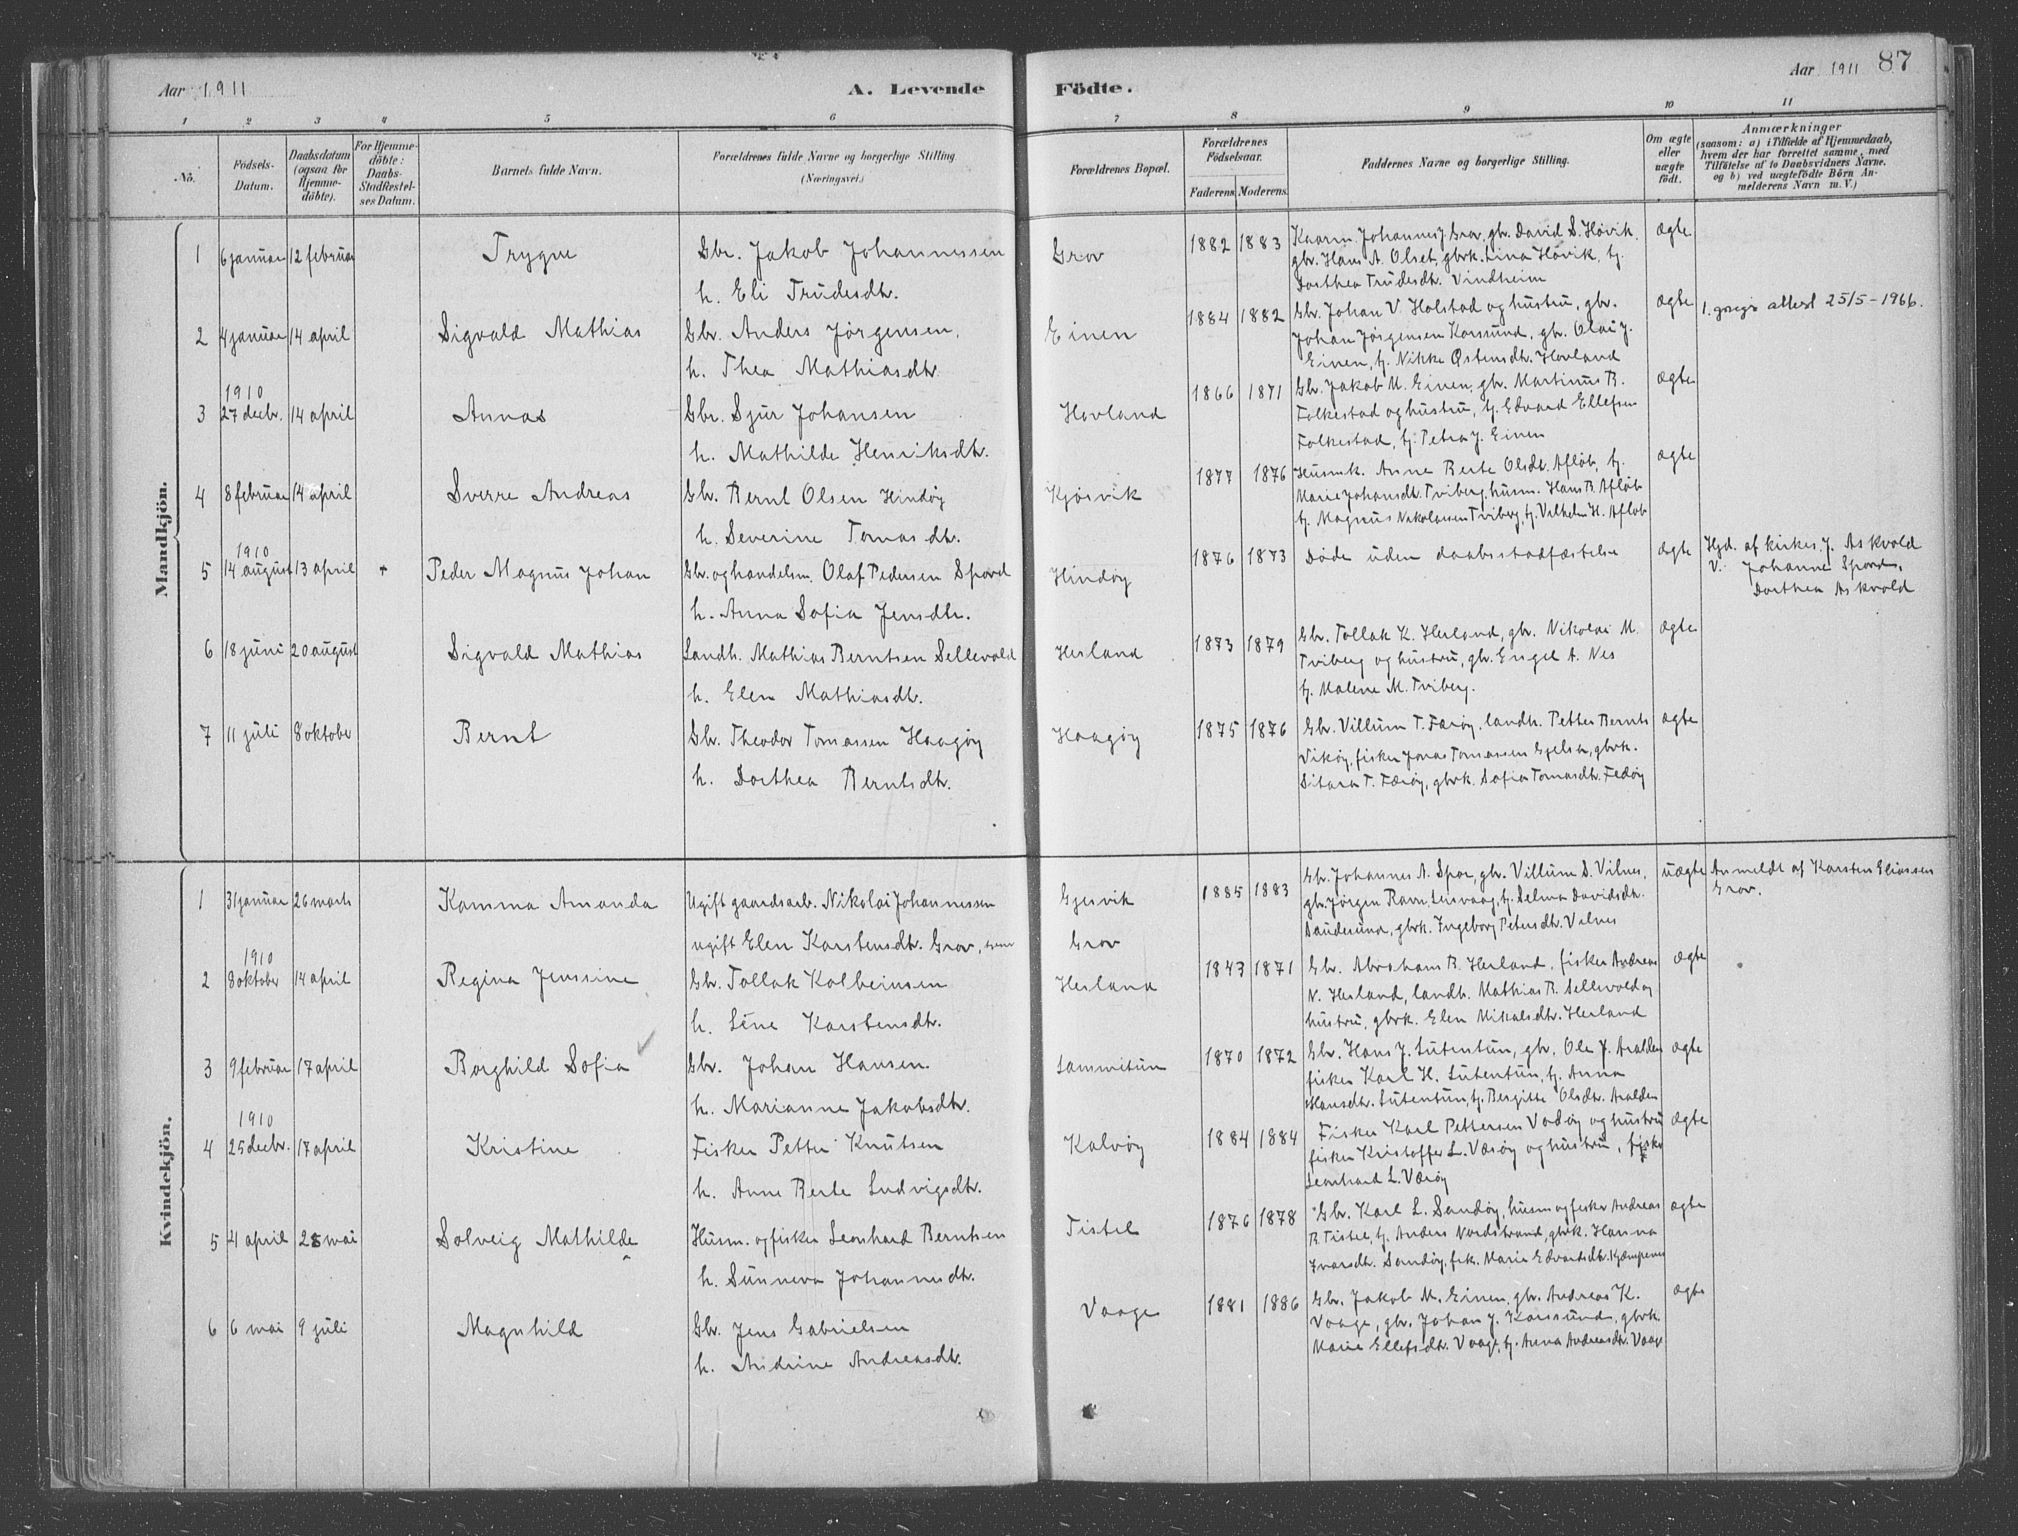 Aar 1911
A. Levende
Födte.
Aar 1911 87
1 2 3 4 5 6 7 8 9 10 11
No.
Födsels-Datum.
Daabsdatum (ogsaa for Hjemmedöbte).
For Hjemmedöbte: Daabs-Stadfæstelses Datum.
Barnets fulde Navn.
Forældrenes fulde Navne og borgerlige Stilling
(Næringsvei.)
Forældrenes Bopæl.
Forældrenes Födselsaar.
Faderens. Moderens.
Faddernes Navne og borgerlige Stilling.
Om ægte eller uægte födt.
Anmærkninger
(saasom: a) i Tilfælde af Hjemmedaab, hvem der har forrettet samme, med Tilföielse af to Daabsvidners Navne, og b) ved uægtefödte Börn Anmelderens Navn m. V.)
Mandkjön.
1 6 januar 12 februar Trygve Gbr. Jakob Johannessen Grov 1882 1883 Kaarm. Johannes J. Grov, gbr. David S. Høvik, ægte
h. Eli Trudesdtr. gbr. Hans A. Olset, gbrk. Lina Høvik, tj.
Dorthea Trudesdtr. Vindheim
2 4 januar 14 april Sigvald Mathias Gbr. Anders Jørgensen, Einen 1884 1882 Gbr. Johan V. Holstad og hustru, gbr. ægte attest 25/5-1966.
h. Thea Mathiasdtr. Johan Jørgensen Korssund, gbr. Olai J.
Einen, tj. Nikke Østensdtr. Hovland
1910
3 27 decbr. 14 april Annas Gbr. Sjur Johansen Hovland 1866 1871 Gbr. Jakob M. Einen, gbr. Martinus B. ægte
h. Mathilde Henriksdtr. Folkestad og hustru, tj. Edvard Ellefsen
Folkestad, tj. Petra J. Einen
4 8 februar 14 april Sverre Andreas Gbr. Bernt Olsen Hindøy Kjøsvik 1877 1876 Husmk. Anne Berte Olsdtr. Afløb, tj. ægte
h. Severine Tomasdtr. Marie Johansdtr. Tviberg, husm. Hans B. Afløb
tj. Magnus Nikolaisen Tviberg, tj. Vilhelm H. Afløb
1910
5 14 august 13 april + Peder Magnus Johan Gbr. og handelsm. Olaf Pedersen Spord Hindøy 1876 1873 Døde uden daabsstadfæstelse ægte Hjd. af kirkes. J. Askvold
h. Anna Sofia Jensdtr. V. Johanne Spord,
Dorthea Askvold
6 18 juni 20 august Sigvald Mathias Landh. Mathias Berntsen Sellevold Herland 1873 1879 Gbr. Tollak K. Herland, gbr. Nikolai M. ægte
h. Elen Mathiasdtr. Tviberg og hustru, gbr. Engel A. Nes
tj. Malene M. Tviberg.
7 11 juli 8 oktober Bernt Gbr. Theodor Tomassen Haagøy Haagøy 1875 1876 Gbr. Villum T. Færøy, landh. Petter Bernts ægte
h. Dorthea Berntsdtr. Vikøy, fisker Jonas Tomassen Gjelsa, gbrk.
Sitara T. Færøy, gbrk. Sofia Tomasdtr. Fedøy
Kvindekjön.
1 31 januar 26 marts Kamma Amanda Ugift gaardsarb. Nikolai Johannessen Gjesvik 1885 1883 Gbr. Johannes A. Spor, gbr. Villum D. Vilnes, uægte Anmeldt af Karsten Eliassen
ugift Elen Karstensdtr. Grov, Grov gbr. Jørgen Ravn, Leirvaag, tj. Selma Davidsdtr. Grov.
Saudesund, gbrk. Ingeborg Petersdtr. Vilnes
1910
2 8 oktober 14 april Regina Jenssine Gbr. Tollak Kolbeinsen Herland 1843 1871 Gbr. Abraham B. Herland, fisker Andreas ægte
h. Lene Karstensdtr. N. Herland, landh. Mathias B. Sellevold og
hustru, gbrk. Elen Mikalsdtr. Herland
3 9 februar 17 april Borghild Sofia Gbr. Johan Hansen Lammetun 1870 1872 Gbr. Hans J. Lutentun, gbr. Ole J. Aralden ægte
h. Marianne Jakobsdtr. fisker Karl H. Lutentun, tj. Anna
Hansdtr. Lutentun, tj. Bergitte Olsdtr. Aralden
1910
4 25 decbr. 17 april Kristine Fisker Petter Knutsen Kalvøy 1884 1884 Fisker Karl Pettersen Vadøy og hustru ægte
h. Anne Berte Ludvigsdtr. fisker Kristoffer L. Værøy og hustru, fisker
Leonhard L. Værøy
5 4 april 25 mai Solveig Mathilde Husm. og fisker Leonhard Berntsen Tistel 1876 1878 Gbr. Karl L. Sandøy, husm. og fisker Andreas ægte
h. Sunneva Johannesdtr. B. Tistel, tj. Anders Nordstrand, gbrk. Hanna
Ivarsdtr. Sandøy, fisk. Marie Edvardsdtr. Kjempenes
6 6 mai 9 juli Magnhild Gbr. Jens Gabrielsen Vaage 1881 1886 Gbr. Jakob M. Einen, gbr. Andreas K. ægte
h. Andrine Andreasdtr. Vaage, gbr. Johan J. Korssund, gbrk.
Marie Ellefsdtr. Vaage, tj. Anna Andreasdtr. Vaage